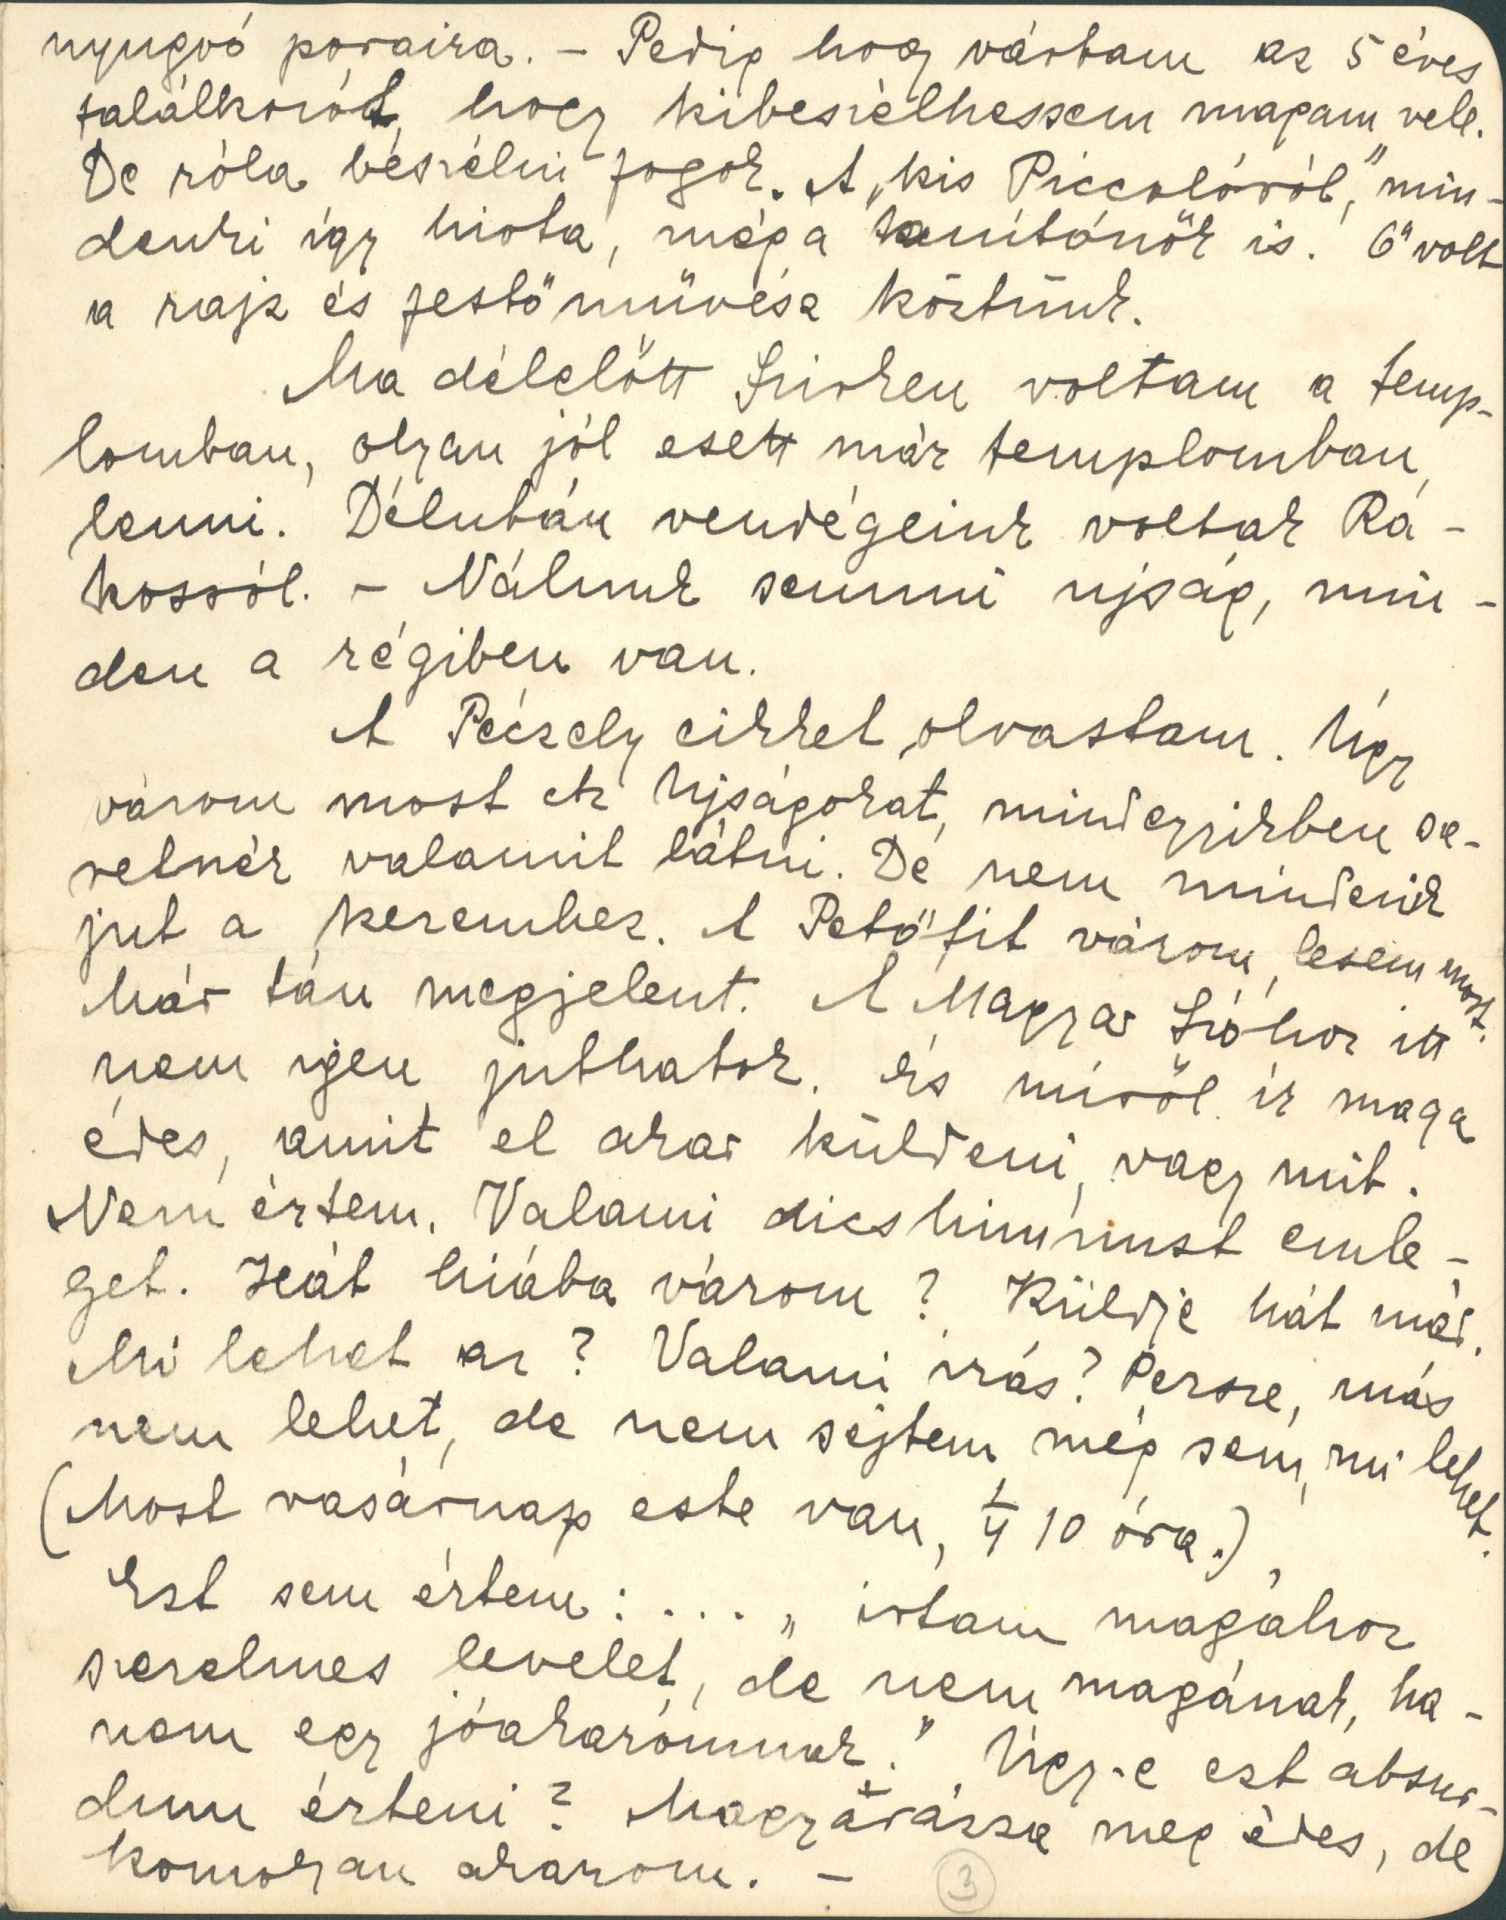 nyugvó poraira. – Pedig hogy vártam az 5 éves
találkozót, hogy kibeszélhessem magam vele.
De róla beszélni fogok. A „kis Piccolóról," min-
denki így hivta, még a tanítónők is. Ő volt
a rajz és festőművész köztünk.
Ma délelőtt Szirken voltam a temp-
lomban, olyan jól esett már templomban
lenni. Délután vendégeink voltak Rá-
kosról. – Nálunk semmi ujság, min-
den a régiben van.
A Péczely cikket olvastam. Úgy
várom most az Ujságokat, mindegyikben sze-
retnék valamit látni. De nem mindenik
jut a kezemhez. A Petőfit várom, lesem most.
Már tán megjelent. A Magyar Szóhoz itt
nem igen juthatok. És miről ír maga
édes, amit el akar küldeni, vagy mit.
Nem értem. Valami dicshimnuszt emle-
get. Hát hiába várom? Küldje hát már.
Mi lehet az? Valami irás? Persze, más
nem lehet, de nem sejtem még sem, mi lehet.
(Most vasárnap este van, 1/4 10 óra.)
Ezt sem értem: .... „írtam magához
szerelmes levelet, de nem magának, ha-
nem egy jóakarómnak." Úgy-e ezt abszur-
dum érteni? Magyarázza meg édes, de
komolyan akarom. –
3